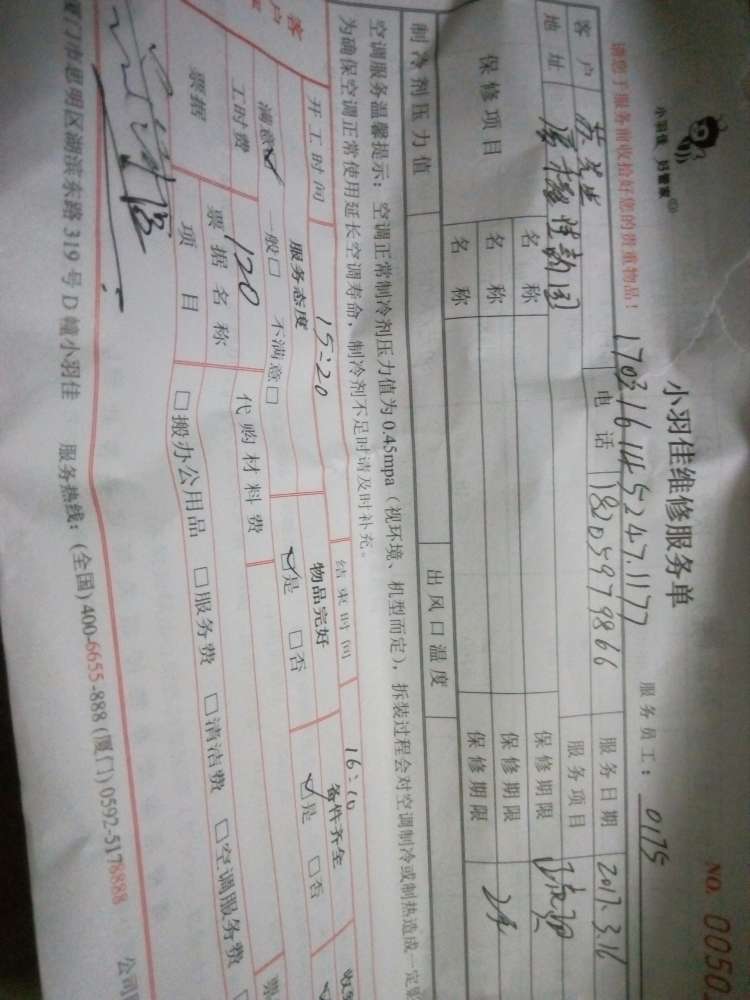 小羽佳 妈管家
小羽佳维修服务单
NO. 0050
请您于服务前收拾好您的贵重物品！
170316145247.1177
服务员工： 0175
客户 苏先生 电话 18205979866 服务日期 2017.3.16
地址 服务项目
保修项目 名称 保修期限
名称 保修期限 2年
名称 保修期限
制冷剂压力值 出风口温度
空调服务温馨提示：空调正常制冷剂压力值为 0.45mpa（视环境、机型而定），拆装过程会对空调制冷或制热造成一定
为确保空调正常使用延长空调寿命，制冷剂不足时请及时补充。
开工时间 15:20 结束时间 16:10
客户
服务态度 物品完好 备件齐全
满意☑ 一般□ 不满意□ ☑是 □否 ☑是 □否
工时费 120 代购材料费
票据 票据名称
项目 □搬办公用品 □服务费 □清洁费 □空调服务费
厦门市思明区湖滨东路 319 号 D 幢小羽佳 服务热线：(全国) 400-6655-888 (厦门) 0592-5178888 公司